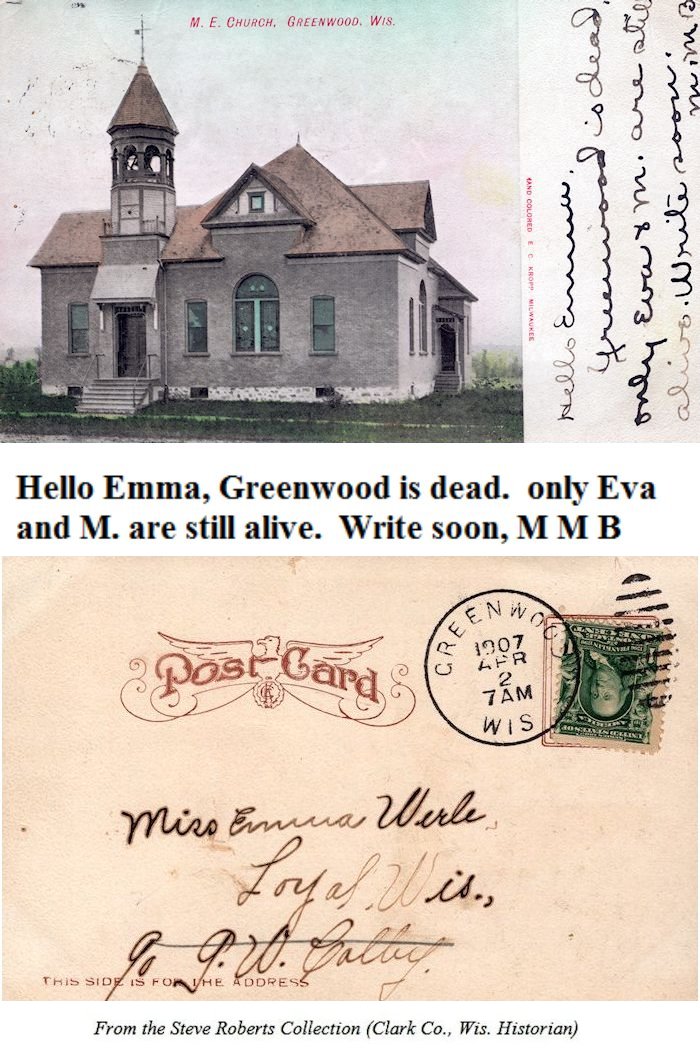 M. E. CHURCH, GREENWOOD, WIS.
Hello Emma.
Greenwood is dead.
only Eva & M. are still
alive. Write soon.
M. M. B
HAND COLORED E. C. KROPP, MILWAUKEE
Hello Emma, Greenwood is dead. only Eva
and M. are still alive. Write soon, M M B
Post Card
GREENWOOD
1907
APR
2
7AM
WIS
UNITED STATES OF
AMERICA
ONE CENT
Miss Emma Werle,
Loyal, Wis.,
℅ P. W. Colby.
THIS SIDE IS FOR THE ADDRESS
From the Steve Roberts Collection (Clark Co., Wis. Historian)